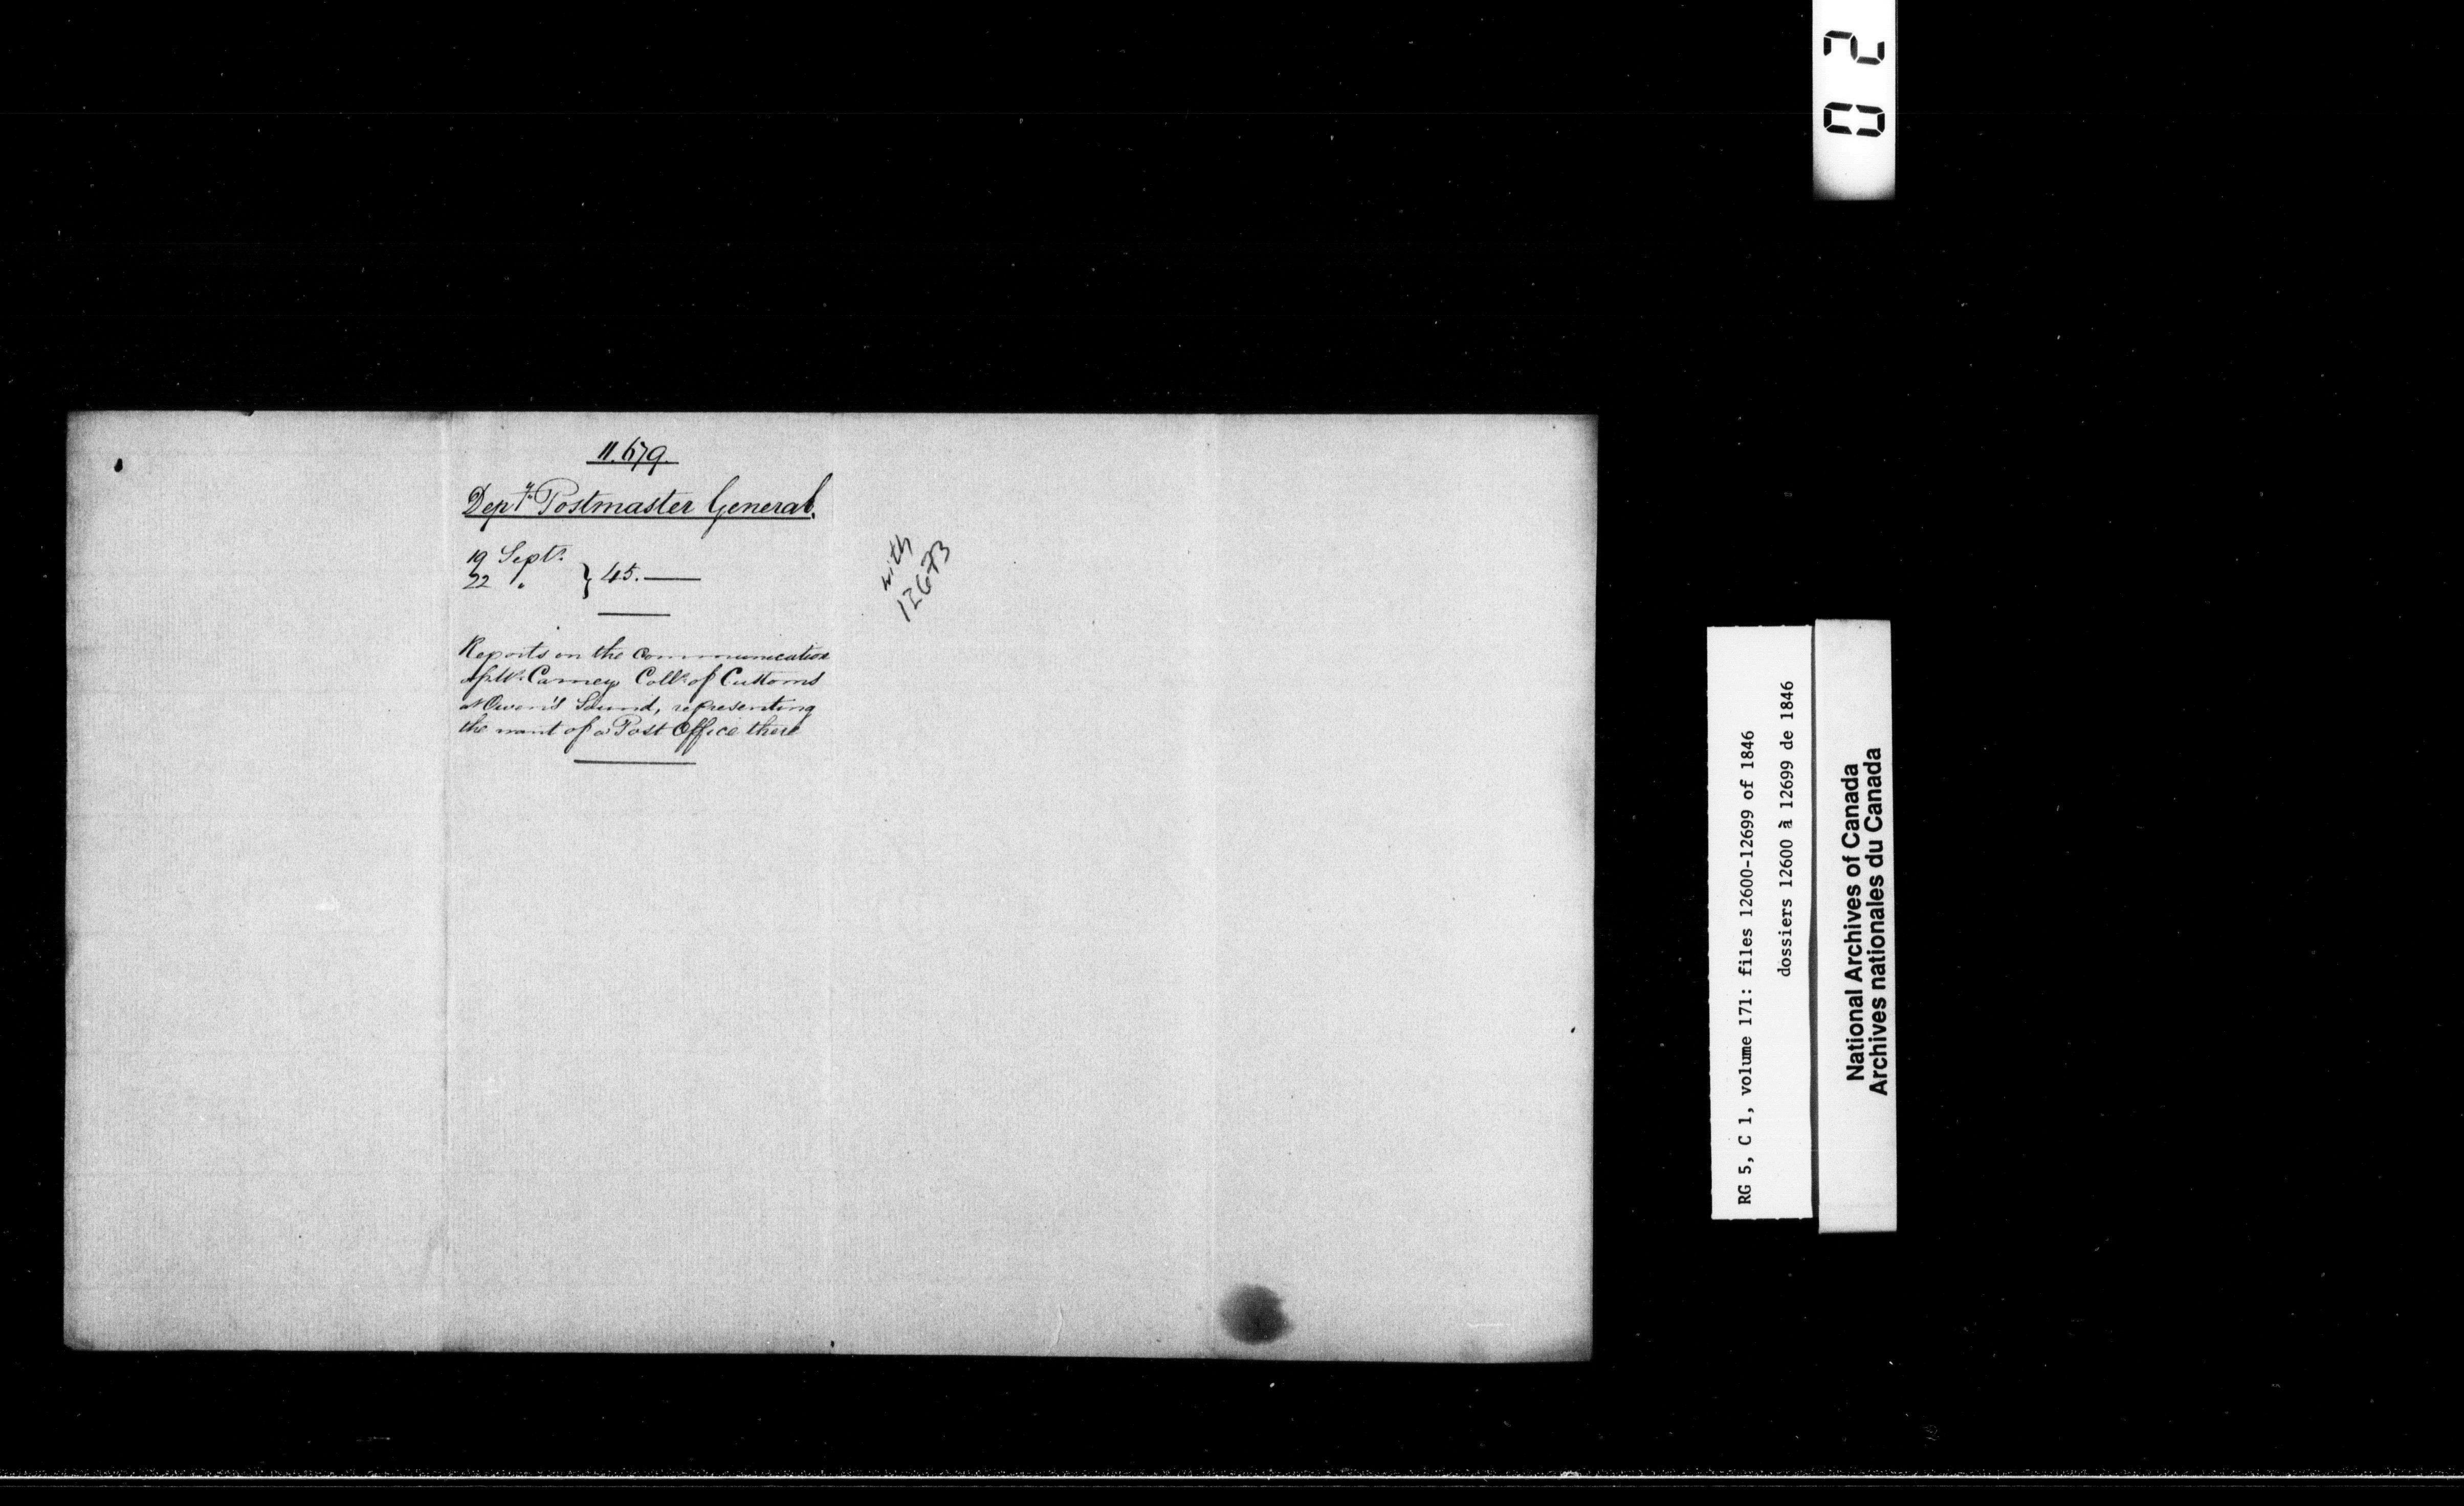 11.679.
Depy. Postmaster General.
19 Septr.
22 " } 45.
Reports on the communication
of Mr. Carney Collr. of Customs
at Owen's Sound, representing
the want of a Post Office there
with
12673
02
RG 5, C 1, volume 171: files 12600-12699 of 1846
dossiers 12600 à 12699 de 1846
National Archives of Canada
Archives nationales du Canada